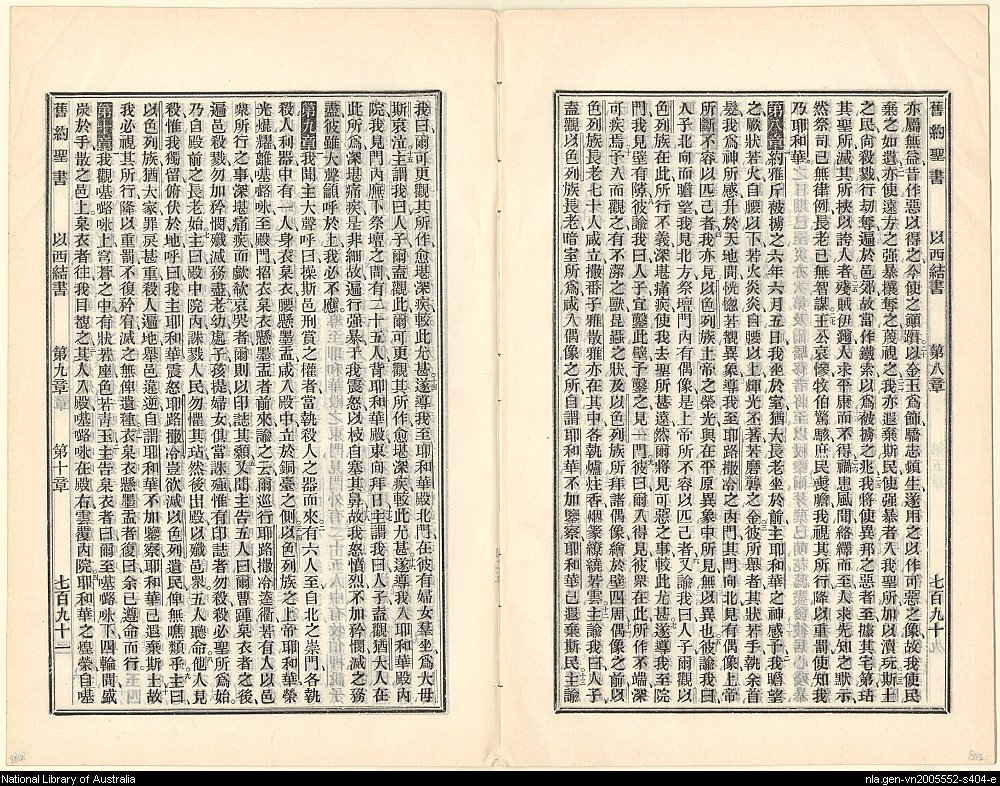 舊約聖書 以西結書 第八章 七百九十
亦屬無益昔作惡以得之今使之顛隕以金玉爲飾驕志頓生遂用之以作可惡之像故我使民
棄之如遺亦使遠方之强暴攘奪之蔑視之我亦遐棄斯民使强暴者入我聖所加以瀆玩斯土
之民肆殺戮行刼奪遍於邑郊故當作鐵索以爲被擄之兆我將使異邦之惡者至據其宅第玷
其聖所滅其所挾以誇人者殘賊伊邇人求平康而不得禍患風聞絡繹而至人求先知之默示
然祭司已無律例長老已無智謀王公哀慘牧伯驚駭庶民喪膽我視其所行降以重罰使知我
乃耶和華
第八章約雅斤被擄之六年六月五日我坐於室猶大長老坐於前主耶和華之神感予我瞻望
之厥狀若火自腰以下若火炎炎自腰以上輝光丕著若磨礱之金彼所舉者其狀若手執余首
髮我爲神所感升於天地間恍惚若觀異象導我至耶路撒冷之內門其門向北見有偶像上帝
所斷不容以匹己者我亦見以色列族上帝之榮光與在平原異象中所見無以異也彼諭我曰
人子北向而瞻望我見北方祭壇門內有偶像是上帝所不容以匹己者又諭我曰人子爾觀以
色列族在此所行不義深堪痛疾使我去聖所甚遠然爾將見可惡之事較此尤甚遂導我至院
門我見壁有隙彼諭我曰人子宜鑿此壁我鑿之見有門彼曰爾入得見彼衆在此所作不端深
可疾焉予入而觀之有不潔之獸昆蟲之狀及以色列族所拜諸偶像繪於壁四周偶像之前以
色列族長老七十人咸立撒番子雅撒雅亦在其中各執爐炷香烟篆繚繞若雲主諭我曰人子
盍觀以色列族長老暗室所爲咸入偶像之所自謂耶和華不加鑒察耶和華已遐棄斯民主諭
我曰爾可更觀其所作愈堪深疾較此尤甚遂導我至耶和華殿北門在彼有婦女羣坐爲大母
斯哀泣主謂我曰人子爾盍觀此爾可更觀其所作愈堪深疾較此尤甚遂導我入耶和華殿內
院我見門內廡下祭壇之間有二十五人背耶和華殿東向拜日主謂我曰人子盍觀猶大人在
此所爲深堪痛疾是非細故遍行强暴干我震怒以枝自塞其鼻故我怒憤烈不加矜憫滅之務
盡彼雖大聲籲呼於上我必不應
第九章我聞主大聲呼曰操斯邑刑賞之權者當執殺人之器而來有六人至自北之崇門各執
殺人利器中有一人身衣枲衣腰懸墨盂咸入殿中立於銅臺之側以色列族之上帝耶和華榮
光焜耀離𠼻𡀔𠱸至殿門招衣枲衣懸墨盂者前來諭之云爾巡行耶路撒冷逵衢若有人以邑
衆所行之事深堪痛疾而歔欷哀哭者爾則以印誌其顙又聞主告五人曰爾曹踵枲衣者之後
遍邑殺戮勿加矜憫殲滅務盡老幼處子孩提婦女俱當誅殛惟有印誌者勿殺殺必聖所爲始
乃自殿前之長老始主曰殿中院內誅戮人民勿懼其玷然後出殿以殲邑衆五人聽命他人見
殺惟我獨留俯伏於地呼曰我主耶和華震怒耶路撒冷豈欲滅以色列遺民俾無噍類乎主曰
以色列族猶大家罪戾甚重殺人遍地舉邑違逆自謂耶和華不加鑒察耶和華已遐棄斯土故
我必視其所行降以重罰不復矜宥滅之無俾遺種衣枲衣懸墨盂者復曰余已遵命而行
第十章我觀𠼻𡀔𠱸上穹蒼之中有狀若座色若青玉主告枲衣者曰爾至𠼻𡀔𠱸下四輪間盛
炭於手散之邑上枲衣者往我目覩之其人入殿𠼻𡀔𠱸在殿右有雲覆內院耶和華之煌榮自𠼻
舊約聖書 以西結書 第九章 第十章 七百九十一
National Library of Australia
nla.gen-vn2005552-s404-e